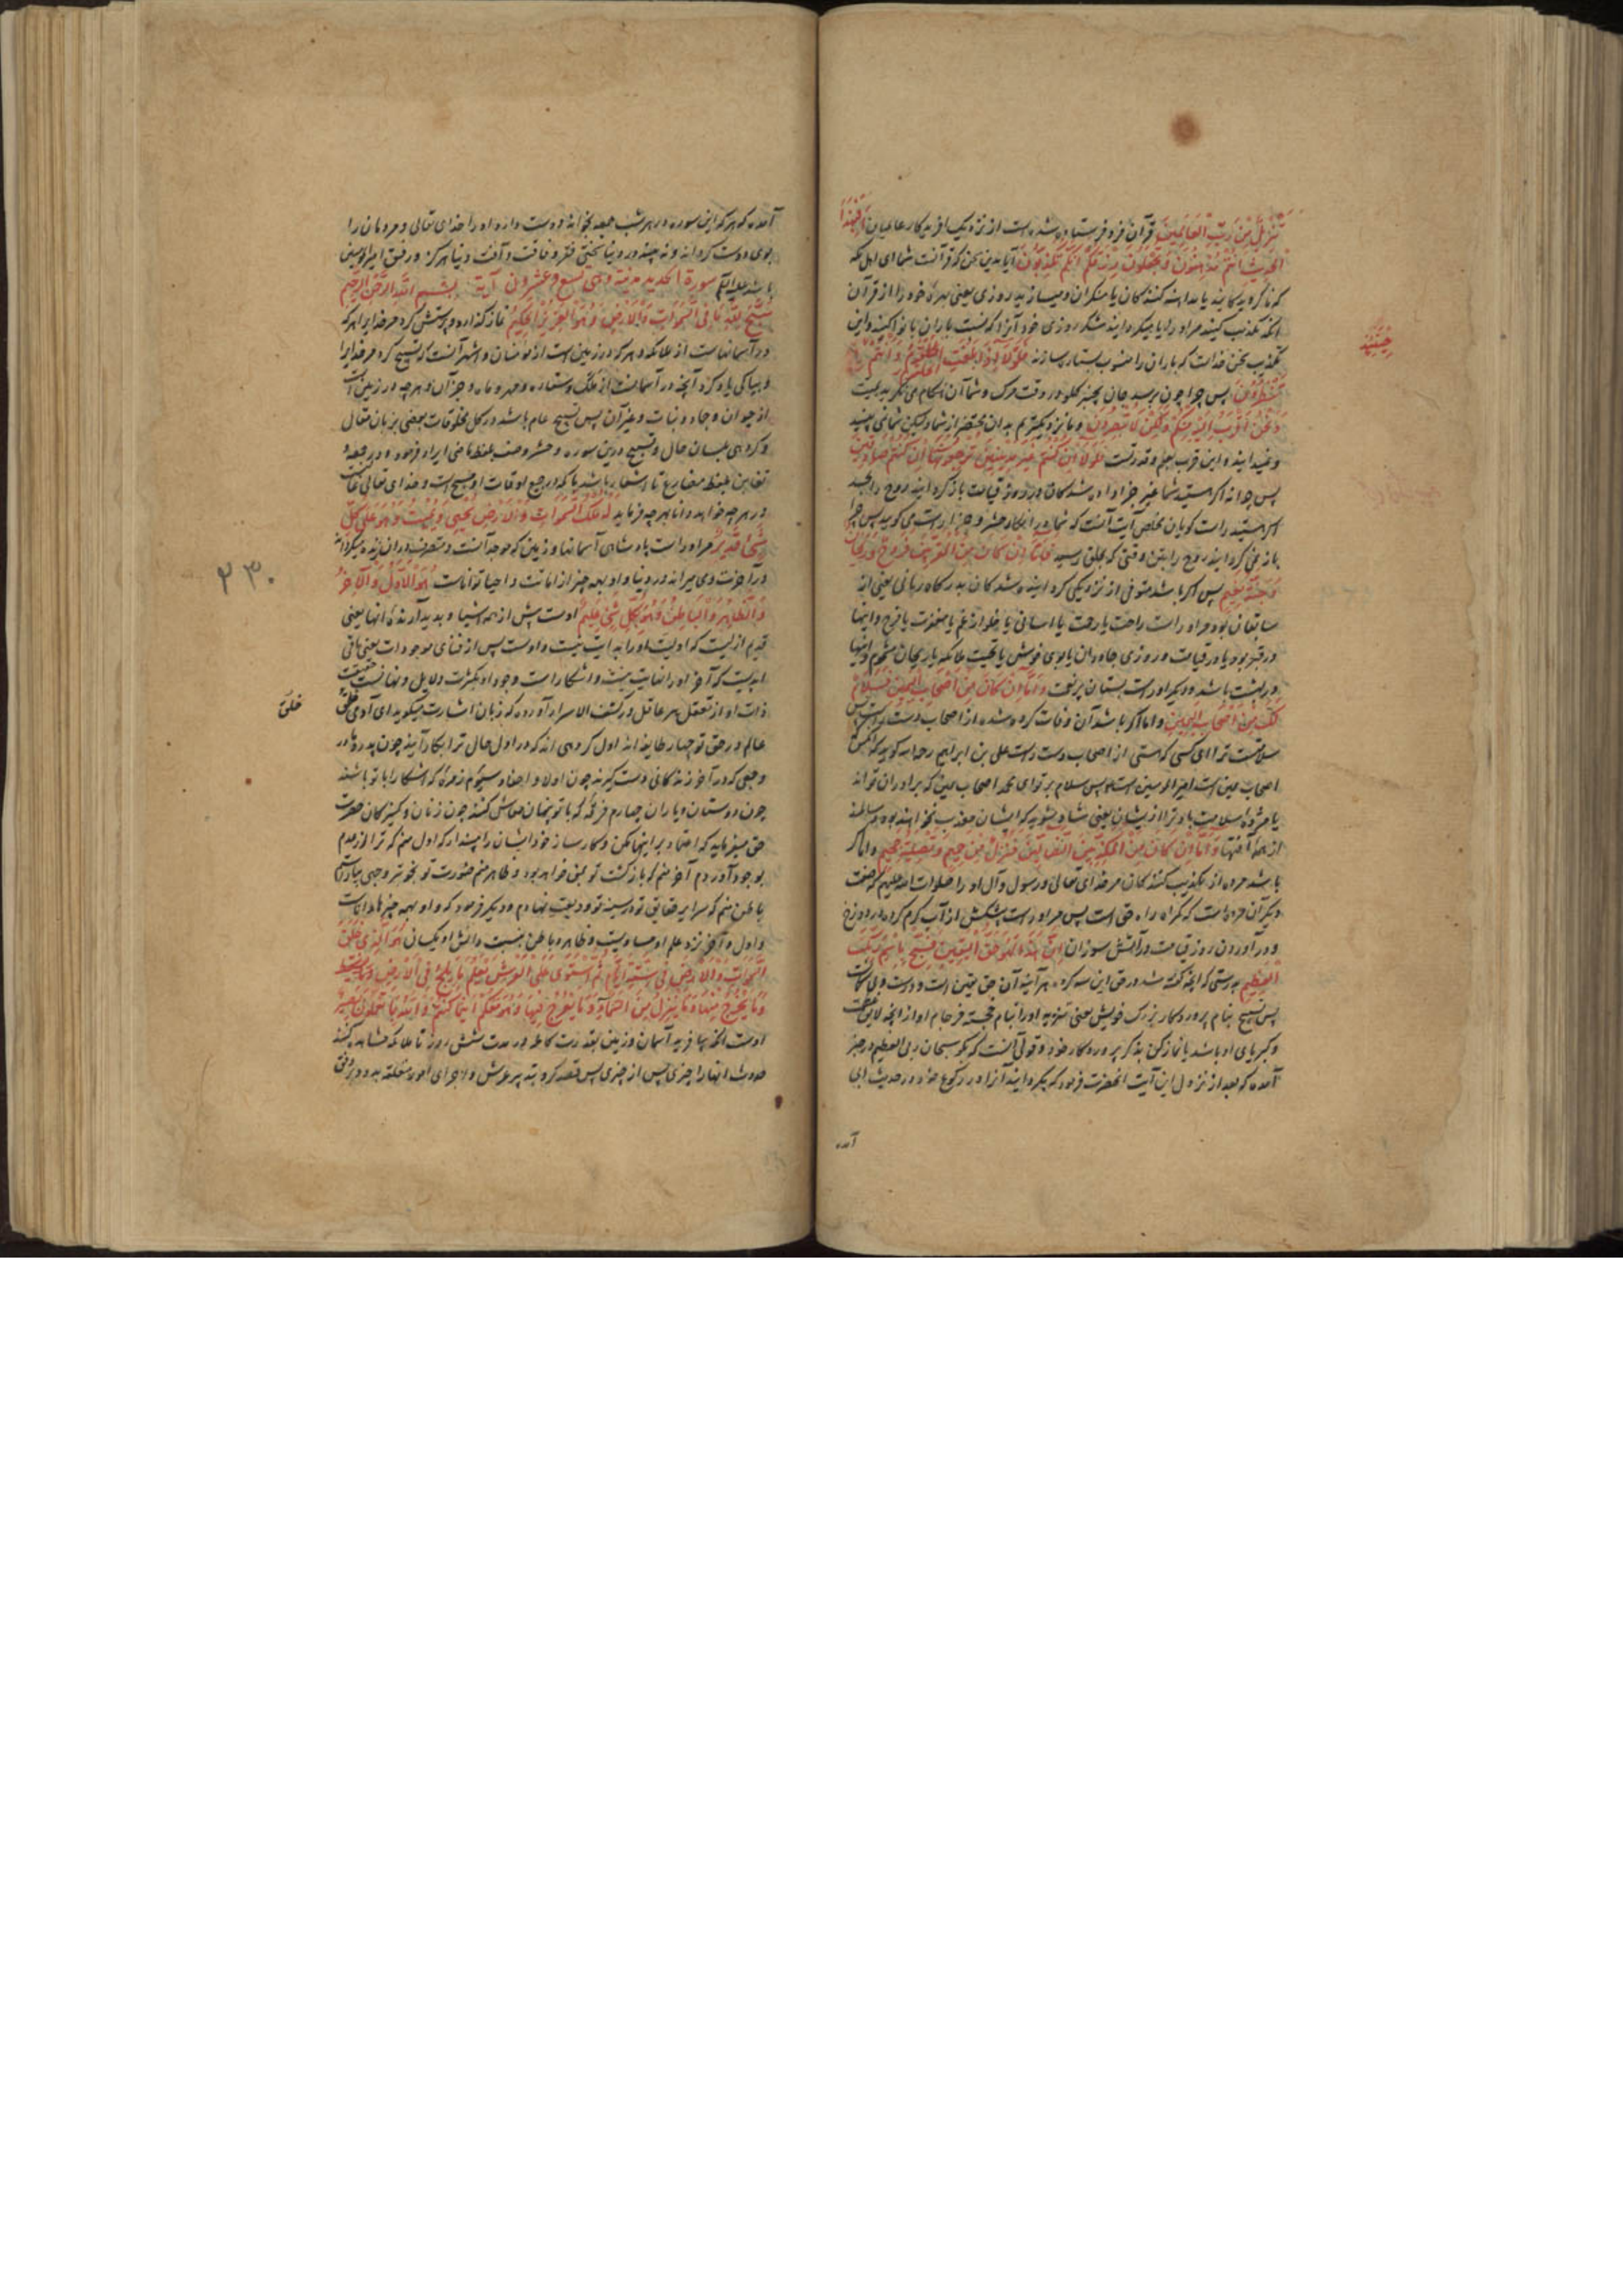 تَنْزِيلٌ مِنْ رَبِّ الْعَالَمِينَ قرآن فرو فرستاده شده است از نزدیک آفریدکار عالمیان اَفَبِهٰذَا
الْحَدِيثِ اَنْتُمْ مُدْهِنُونَ وَتَجْعَلُونَ رِزْقَكُمْ اَنَّكُمْ تُكَذِّبُونَ آیا بدین سخن که قرآنست شما ای اهل مکه
که ناکرویدکانید یا مداهنه کنندکان یا منکران و میسازید روزی یعنی بهرۀ خود را از قرآن
آنکه تکذیب کنید مر او را یا میکردانید شکر روزی خود آنرا که نسبت باران بانوا کنید و این
تکذیب سخن خداست که باران را منسوب بستاره سازند فَلَوْلَا اِذَا بَلَغَتِ الْحُلْقُومَ وَاَنْتُمْ
حِينَئِذٍ
تَنْظُرُونَ پس چرا چون برسد جان بچنبر کلو در وقت مرک و شما آن هنکام می نکرید بمیت
وَنَحْنُ اَقْرَبُ اِلَيْهِ مِنْكُمْ وَلٰكِنْ لَا تُبْصِرُونَ و ما نزدیکتریم بدان محتضر از شما و لیکن شما نمی بینید
و نمیدانید و این قرب بعلم و قدرتست فَلَوْلَا اِنْ كُنْتُمْ غَيْرَ مَدِينِينَ تَرْجِعُونَهَا اِنْ كُنْتُمْ صَادِقِينَ
پس چرا نه اکر هستید شما غیر جزا داده شدکان در روز قیامت باز کردانید روح را بجسد
اکر هستید راست کویان ملخص آیت آنست که شما در انکار حشر و جزا راست می کویید پس چرا
باز نمی کردانید روح را بتن وقتی که بحلق رسید فَاَمَّا اِنْ كَانَ مِنَ الْمُقَرَّبِينَ فَرَوْحٌ وَرَيْحَانٌ
وَجَنَّةُ نَعِيمٍ پس اکر باشد متوفی از نزدیکی کردانیده شدکان بدرکاه ربانی یعنی از
سابقان بود مر او راست راحت یا رحت یا آسانی یا خلو از غم یا مغفرت یا فرح و اینها
در قبر بود یا در قیامت و روزی جاودان یا بوی خوش یا تحیت ملائکه یا ریحان مشموم و اینها
در بهشت باشد و دیکر او راست بستان پر نعمت وَاَمَّا اِنْ كَانَ مِنْ اَصْحَابِ الْيَمِينِ فَسَلَامٌ
لَكَ مِنْ اَصْحَابِ الْيَمِينِ و اما اکر باشد آن وفات کرده شده از اصحاب دست راست پس
سلامتست ترا ای کسی که هستی از اصحاب دست راست علی بن ابراهیم رحمه الله کوید که
اصحاب یمین است امیرالمومنین است پس سلام بر تو ای محمد اصحاب یمین که برادران تو اند
یا مژده سلامت باد ترا از یشان یعنی شاد شوید که ایشان معذب نخواهند بود و سالمند
از همۀ آفتها وَاَمَّا اِنْ كَانَ مِنَ الْمُكَذِّبِينَ الضَّالِّينَ فَنُزُلٌ مِنْ حَمِيمٍ وَتَصْلِيَةُ جَحِيمٍ و اما اکر
باشد مرده از تکذیب کنندکان مر خدای تعالی و رسول و آل او را صلوات الله علیهم که صفت
دیکر آن مرده است که کمراه راه حق است پس مر او راست پیشکش از آب کرم کرده در دوزخ
و در آوردن روز قیامت در آتش سوزان اِنَّ هٰذَا لَهُوَ حَقُّ الْيَقِينِ فَسَبِّحْ بِاسْمِ رَبِّكَ
الْعَظِيمِ بدرستی که آنچه کفته شد در حق این سه کروه هر آینه آن حق یقین است و درست و بی شک است
پس تسبیح بنام پروردکار بزرک خویش یعنی تنزیه او را بنام خجسته فرجام او از آنچه لایق
و کبریای او باشد یا نماز کن بذکر پروردکار خود و قولی آنست که بکو سبحان ربی العظیم در خبر
آمده که بعد از نزول این آیت آنحضرت فرمود که بکردانید آنرا در رکوع خود و در حدیث ابی
آمده
آمده که هر که این سوره در هر شب جمعه بخواند دوست دارد او را خدای تعالی و مردمان را
بوی دوست کرداند و نه بیند در دنیا سختی فقر و فاقت و آفت دنیا هرکز و رفیق امیرالمومنین
باشد علیه السلم سورة الحدید مدنیة وهی تسع وعشرون آیة بِسْمِ اللّٰهِ الرَّحْمٰنِ الرَّحِيمِ
سَبَّحَ لِلّٰهِ مَا فِى السَّمٰوَاتِ وَالْاَرْضِ وَهُوَ الْعَزِيزُ الْحَكِيمُ نماز کذارد و پرستش کرد مر خدایرا هر که
در آسمانهاست از ملائکه و هر که در زمین است از مومنان و اشهر آنست که تسبیح کرد مر خدایرا
و بپاکی یاد کرد آنچه در آسمانست از ملک و ستاره و مهر و ماه و جز آن و هر چه در زمین است
از حیوان و جماد و نبات و غیر آن پس تسبیح عام باشد در کل مخلوقات بعضی بزبان مقال
و کروهی بلسان حال و تسبیح درین سوره و حشر و صف بلفظ ماضی ایراد فرمود و در جمعه و
تغابن بلفظ مضارع تا اشعار باشد بانکه در جمیع اوقات او مسبح است و خدای تعالی غالبست
در هر چه خواهد دانا بهر چه فرماید لَهُ مُلْكُ السَّمٰوَاتِ وَالْاَرْضِ يُحْيِى وَيُمِيتُ وَهُوَ عَلٰى كُلِّ
شَىْءٍ قَدِيرٌ مر او راست پادشاهی آسمانها و زمین که موجد آنست و متصرف در آن زنده میکرداند
در آخرت و می میراند در دنیا و او بهمه چیز از اماتت و احیا تواناست هُوَ الْاَوَّلُ وَالْاٰخِرُ
وَالظَّاهِرُ وَالْبَاطِنُ وَهُوَ بِكُلِّ شَىْءٍ عَلِيمٌ اوست پیش از همه اشیا و پدید آرندۀ آنها یعنی
٢٣٠
قدیم ازلیست که اولیت او را بدایت نیست و اوست پس از فنای موجودات یعنی باقی
ابدیست که آخر او را نهایت نیست و آشکار است وجود او بکثرت دلایل و نهانست حقیقت
ذات او از تعقل هر عاقل و در کشف الاسرار آورده که زبان اشارت میکوید ای آدمی خلق
خلق
عالم در حق تو چهار طایفه اند اول کروهی اند که در اول حال ترا بکار آیند چون پدر و مادر
و جمعی که در آخر زندکانی دست کیرند چون اولاد و احفاد سیوم زمرۀ که آشکارا با تو باشند
چون دوستان و یاران چهارم فرقۀ که با تو پنهان معاش کنند چون زنان و کنیزکان حضرت
حق میفرماید که اعتماد بر اینها مکن و کارساز خود ایشان را مپندار که اول منم که ترا از عدم
بوجود آوردم آخر منم که بازکشت تو بمن خواهد بود و ظاهر منم صورت تو بخوبتر وجهی بیاراستم
باطن منم که سرایر حقایق تو در سینه تو ودیعت نهادم و دیکر فرمود که و او بهمه چیزها داناست
و اول و آخر نزد علم او مساویست و ظاهر و باطن بنسبت دانش او یکسان هُوَ الَّذِى خَلَقَ
السَّمٰوَاتِ وَالْاَرْضَ فِى سِتَّةِ اَيَّامٍ ثُمَّ اسْتَوٰى عَلَى الْعَرْشِ يَعْلَمُ مَا يَلِجُ فِى الْاَرْضِ
وَمَا يَخْرُجُ مِنْهَا وَمَا يَنْزِلُ مِنَ السَّمَآءِ وَمَا يَعْرُجُ فِيهَا وَهُوَ مَعَكُمْ اَيْنَمَا كُنْتُمْ وَاللّٰهُ بِمَا تَعْمَلُونَ بَصِيرٌ
اوست آنکه بیافرید آسمان و زمین بقدرت کامله در مدت شش روز تا ملائکه مشاهده کنند
حدوث آنها را چیزی پس از چیزی پس قصد کرد بتدبیر عرش و اجرای امور متعلقه بدو بر وفق